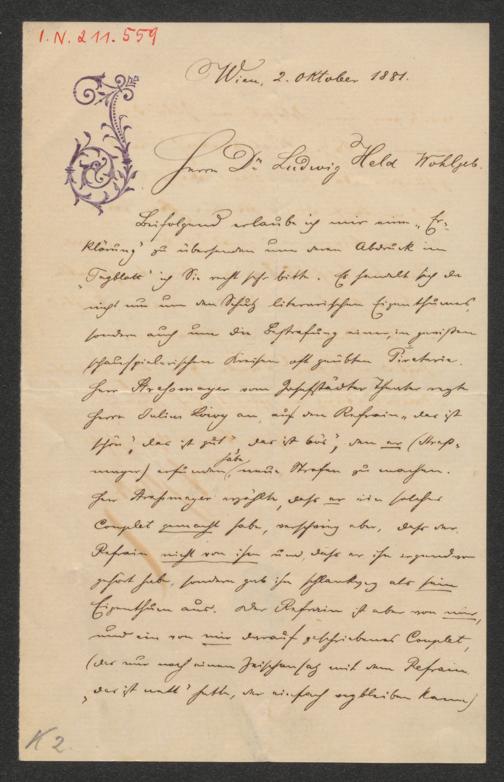 I.N. 211.559
Wien, 2. Oktober 1881.
Herrn Dr Ludwig Held Wohlgeb.
Beifolgend erlaube ich mir eine „Er-
klärung" zu übersenden um deren Abdruck im
„Tagblatt" ich Sie recht sehr bitte. Es handelt sich da
nicht nur um den Schutz literarischen Eigenthumes,
sondern auch um die Bestrafung einer, in gewißen
schauspielerischen Kreisen oft geübten Piraterie.
Herr Straßmayer vom Josefstädter Theater regte
Herrn Julius Löwy an, auf den Refrain „das ist
schön", das ist gut" das ist bös", den er (Straß-
mayer) erfunden, habe neue Strofen zu machen.
Herr Straßmayer erzählte, daß er ein solches
Couplet gemacht habe, verschwieg aber, daß der
Refrain nicht von ihm und, daß er ihn irgendwo
gehört habe, sondern gab ihn schlankweg als sein
Eigenthum aus. Der Refrain ist aber von mir,
und ein von mir darauf geschriebenes Couplet,
(das nur noch einen Zwischensatz mit dem Refrain
„das ist nett" hatte, der einfach wegbleiben kann)
K 2.